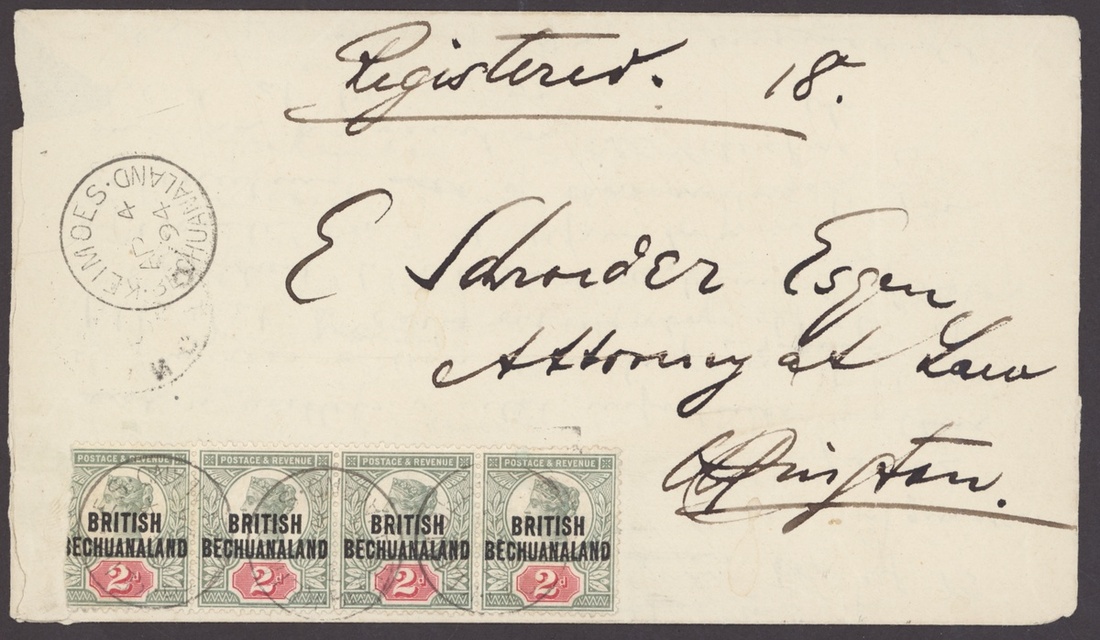 Registered. 18.
E Schroder Esqre
Attorney at Law
Upington.
KEIMOES. BECHUANALAND.
AP 4
94
POSTAGE & REVENUE POSTAGE & REVENUE POSTAGE & REVENUE POSTAGE & REVENUE
BRITISH BRITISH BRITISH BRITISH
BECHUANALAND BECHUANALAND BECHUANALAND BECHUANALAND
2d 2d 2d 2d